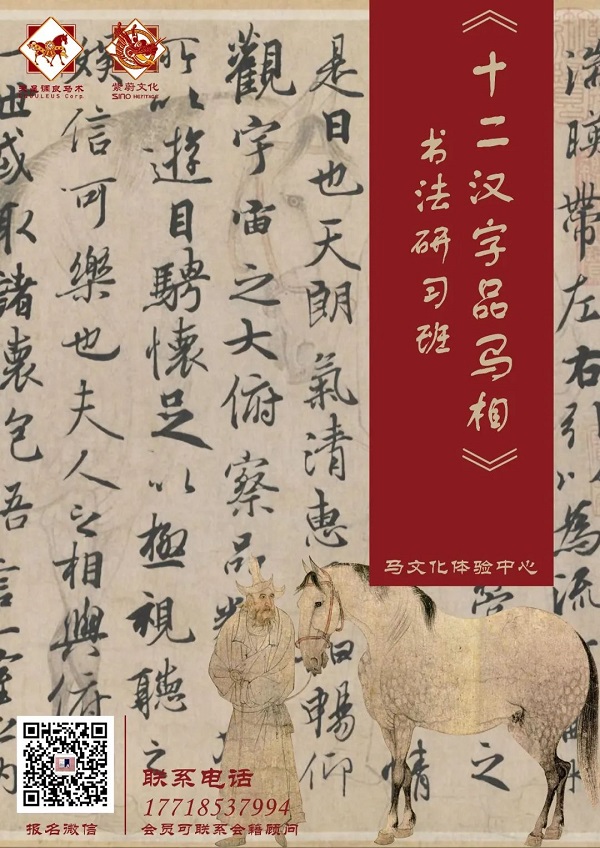 天星调良马术
EQUULEUS Corp.
紫蔚文化
SINO HERITAGE
《十二汉字品马相》
书法研习班
马文化体验中心
湍映帶左右引以為流
情
是日也天朗氣清惠
暢仰
觀宇宙之大俯察品
所以遊目騁懷足以極視聽之
娛信可樂也夫人之相與俯
一世或取諸懷抱吾言一室之內
报名微信
联系电话
17718537994
会员可联系会籍顾问